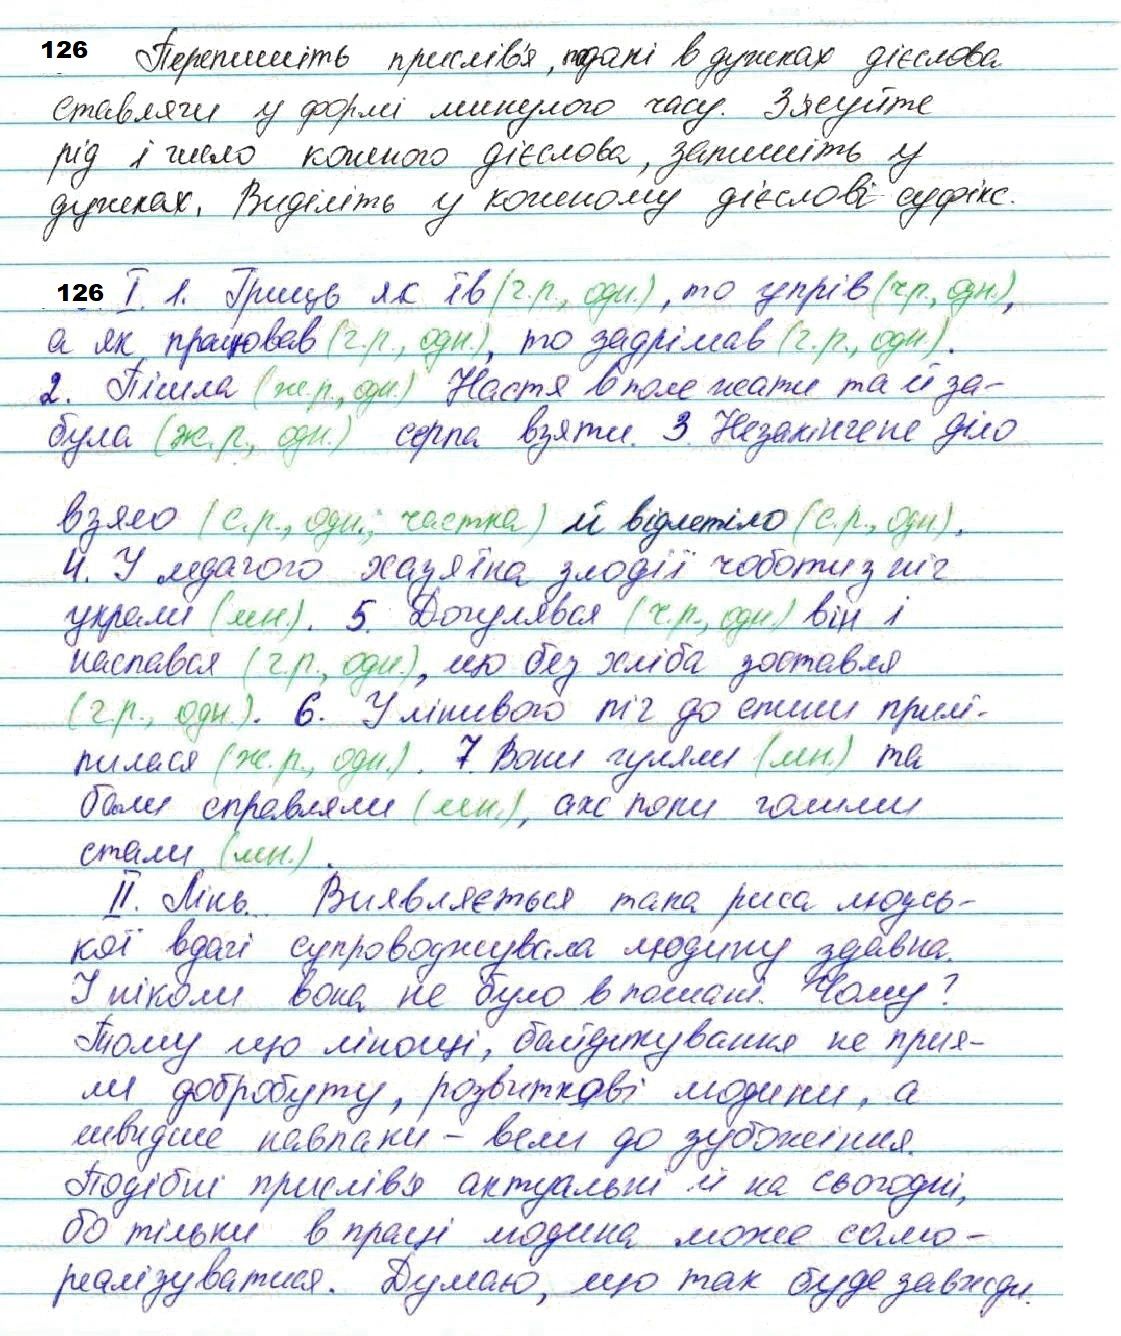 126 Перепишіть прислів'я, подані в дужках дієслова
ставлячи у формі минулого часу. З'ясуйте
рід і число кожного дієслова, запишіть у
дужках. Виділіть у кожному дієслові суфікс.
126 I. 1. Гриць як їв (ч.р., одн.), то упрів (ч.р., одн.),
а як працював (ч.р., одн.), то задрімав (ч.р., одн.).
2. Пішла (ж.р., одн.) Настя в поле жати та й за-
була (ж.р., одн.) серпа взяти. 3. Незакінчене діло
взяло (с.р., одн., частка) й відлетіло (с.р., одн).
4. У ледачого хазяїна злодії чоботи з ніг
украли (мн.). 5. Догулявся (ч.р., одн.) він і
наспався (ч.р., одн.), що без хліба зоставля
(ч.р., одн.). 6. У лінивого піч до спини прилі-
пилася (ж.р., одн.). 7. Вони гуляли (мн.) та
бали справляли (мн.), аж поки голими
стали (мн.).
II. Лінь. Виявляється така риса людсь-
кої вдачі супроводжувала людину здавна.
І ніколи вона не було в пошані. Чому?
Тому що лінощі, байдикування не прия-
ли добробуту, розвиткові людини, а
швидше навпаки – вели до зубожіння.
Подібні прислів'я актуальні й на сьогодні,
бо тільки в праці людина може само-
реалізуватися. Думаю, що так буде завжди.